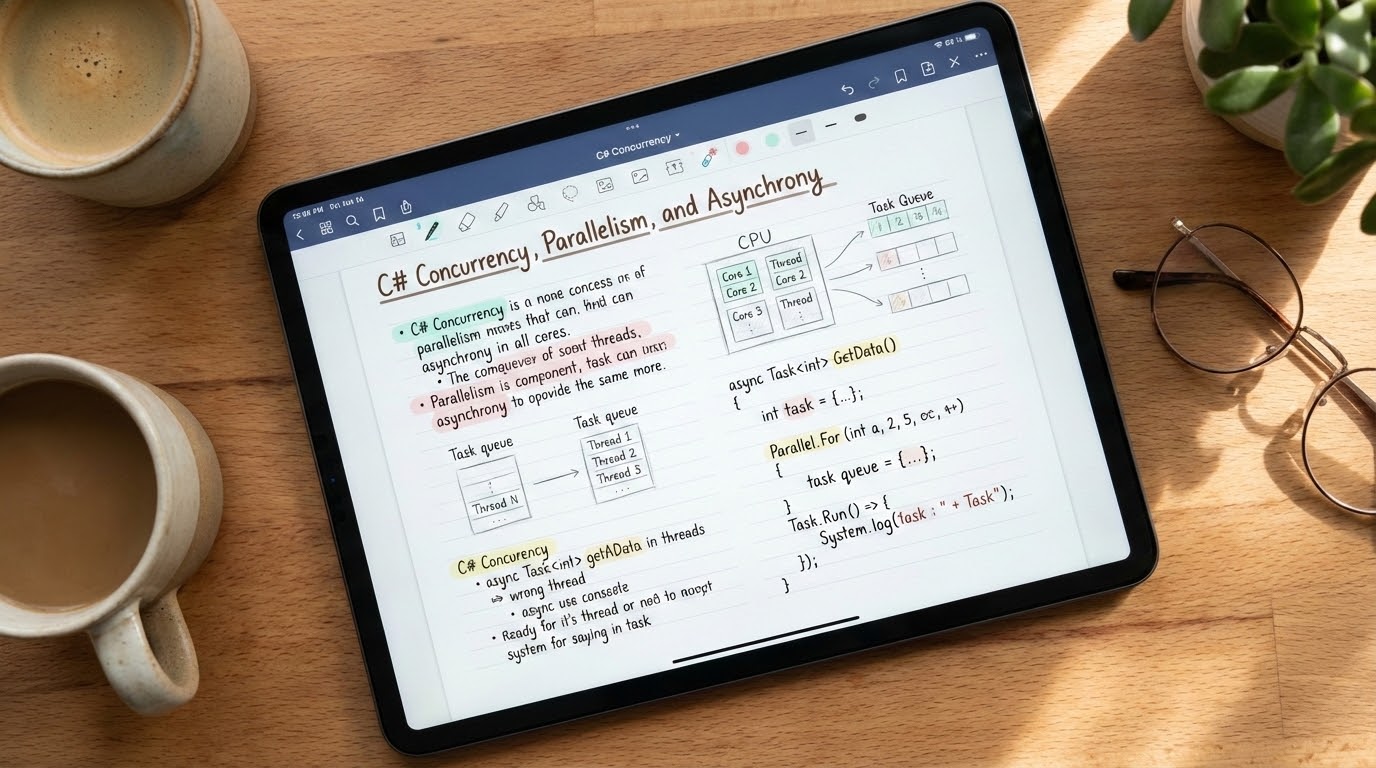 C# Concurrency
C# Concurrency, Parallelism, and Asynchrony
• C# Concurrency is a none concess of of
parallelism that can, can
asynchrony in all cores.
• The of threads,
• Parallelism is component, task can
asynchrony to opovide the same more.
Task queue
Thread N
...
Task queue
Thread 1
Thread 2
Thread 5
...
C# Concurency
• async Task<int> getAData in threads
⇒ wrong thread
• async use
• Ready for it's thread or to
system for saying in task
CPU
Core 1
Core 2
Core 3
Thread
Core 2
Thread
Task Queue
1 2
async Task<int> GetData()
{
int task = {...};
Parallel.For (int a, 2, 5,
{
task queue = {...};
}
Task.Run() => {
System.log(task : " + Task");
});
}